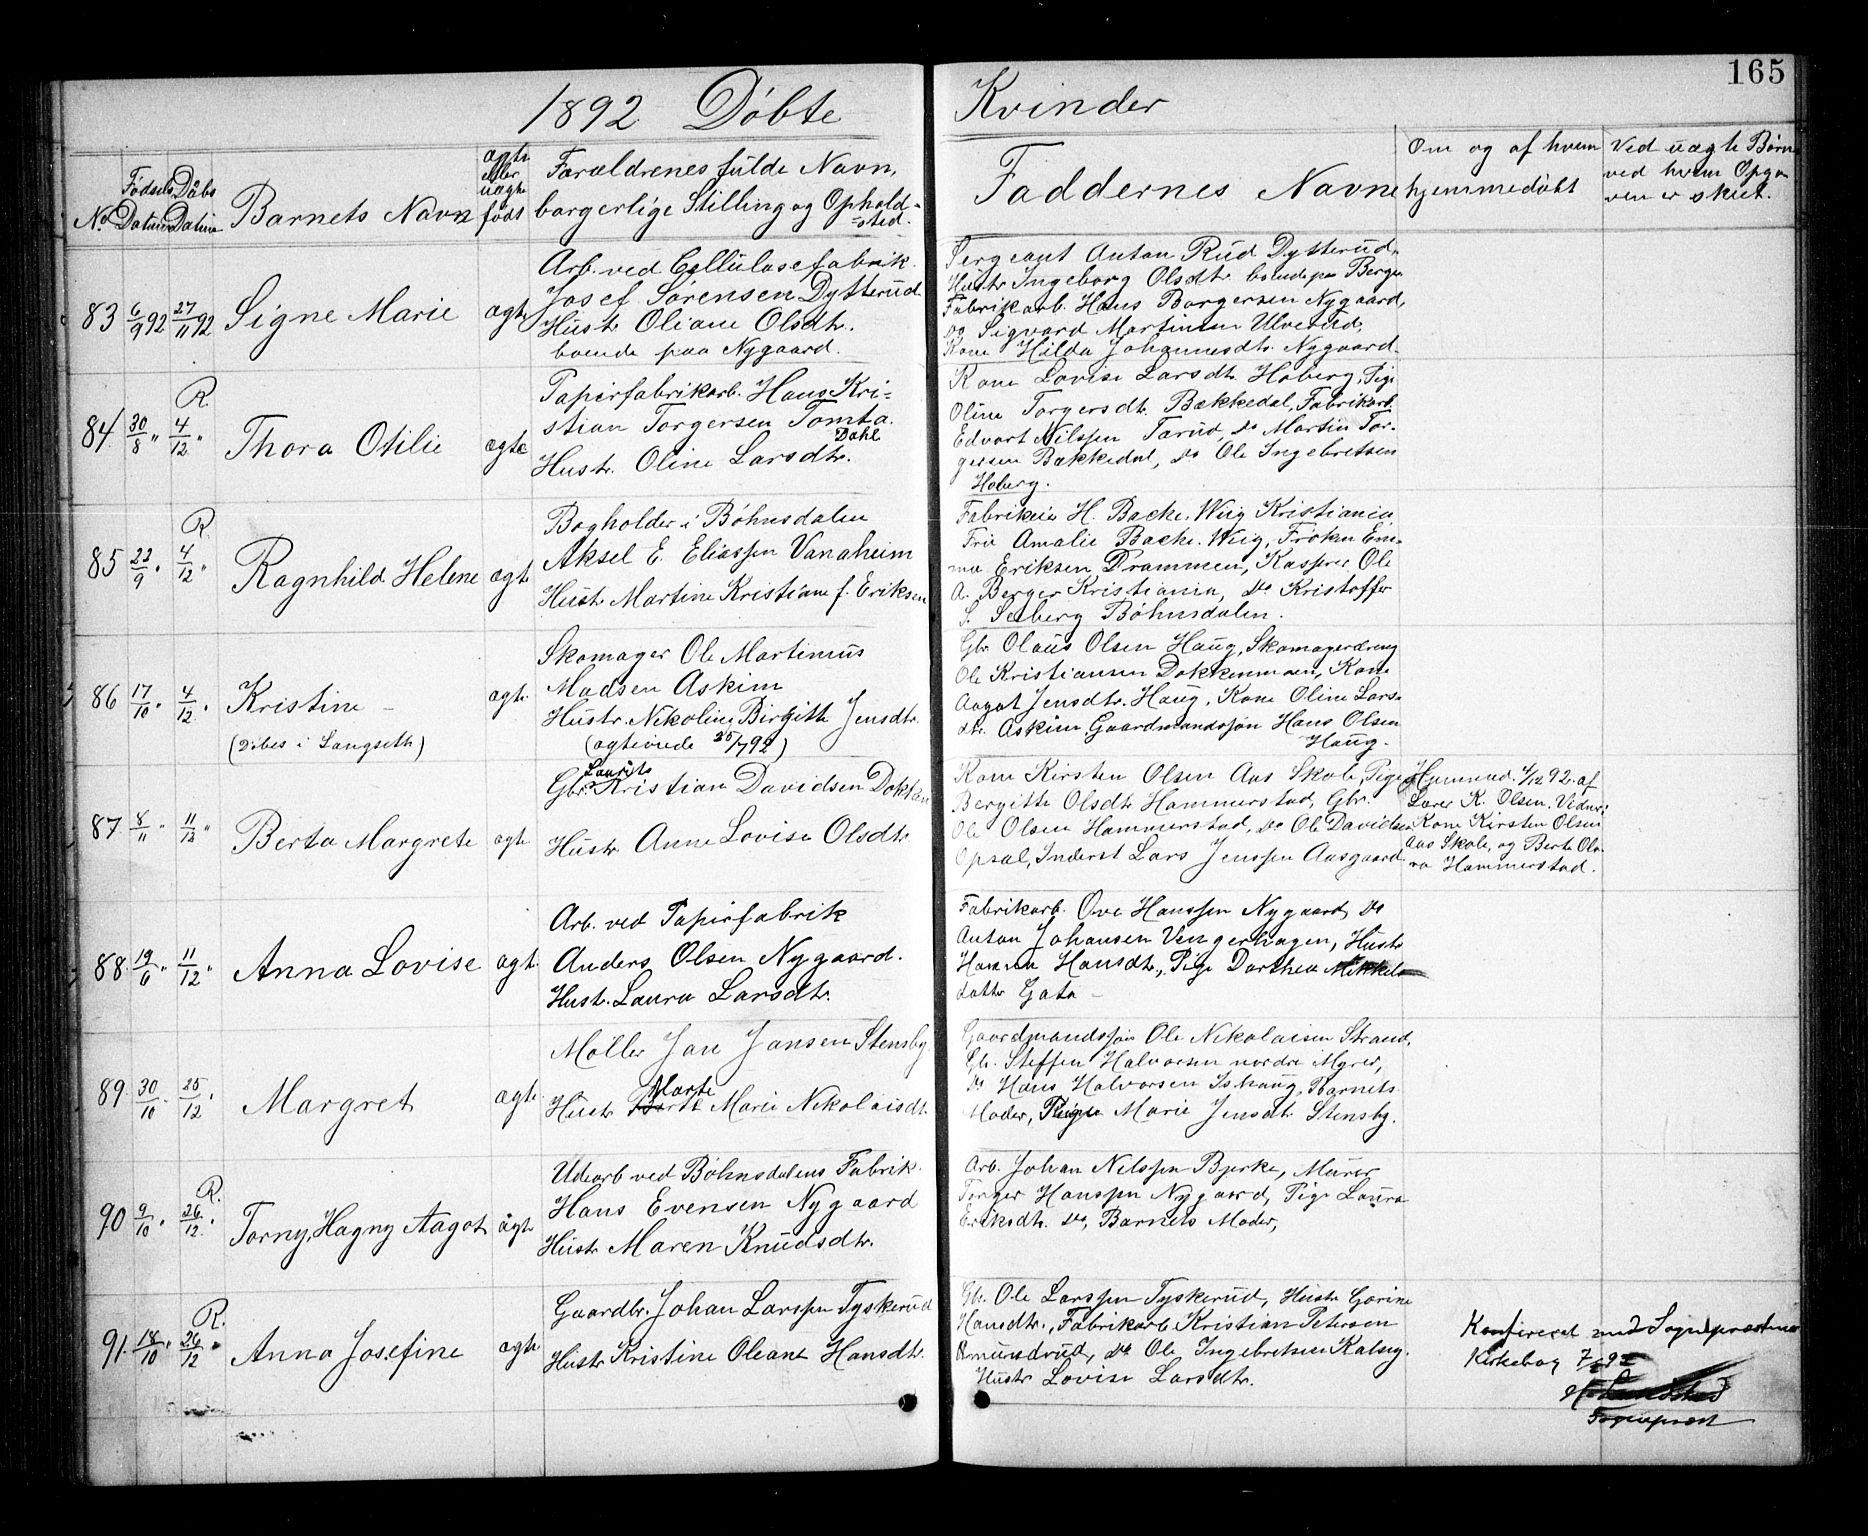 165
1892 Døbte Kvinder
No
Fødsels Datum
Daabs Datum
Barnets Navn
ægte eller uægte født
Forældrenes fulde Navn,
borgerlige Stilling og Ophold-
-sted.
Faddernes Navne
Om og af hvem
hjemmedøbt
Ved uægte Børn
ved hvem Opga-
ven er skiet.
83 6/9 92 27/11 92 Signe Marie ægte
Arb. ved Cellulosefabrik
Josef Sørensen Dytterud
Hustr. Oliane Olsdtr.
boende paa Nygaard.
Sergeant Anton Rud Dytterud,
Hustr Ingeborg Olsdtr boende paa Berger
Fabrikarb. Hans Borgersen Nygaard,
Do Sigvard Martinsen Ulverud,
Kone Hilda Johannesdtr. Nygaard.
84. 30/8 " R. 4/12 " Thora Otilie ægte
Papirfabrikarb. Hans Kri-
stian Torgersen Tomta.
Dahl
Hustr. Oline Larsdtr.
Kone Lovise Larsdtr. Hoberg, Pige
Oline Torgersdtr. Bækkedal, Fabrikarb.
Edvart Nilssen Tærud, Do Martin Tor-
gersen Bækkedal, Do Ole Ingebretsen
Hoberg.
85 22/9 " R. 4/12 " Ragnhild Helene ægte
Bogholder i Bøhnsdalen
Aksel E. Eliassen Vanaheim
Hustr Martine Kristiane f. Eriksen
Fabrikeier H. Backe. Wiig Kristiania
Frue Amalie Backe. Wiig, Frøken Em-
ma Eriksen Drammen, Kasserer Ole
A. Berger Kristiania, Do Kristoffer
S. Seeberg Bøhnsdalen.
86 17/10 " 4/12 " Kristine - ægte
(Døbes i Langseth)
Skomager Ole Martinius
Madsen Askim
Hustr. Nikoline Birgitte Jensdtr.
(ægteviede 25/7 92)
Gbr Olaus Olsen Haug, Skomagerdreng
Ole Kristiansen Dokkenmoen, Kone
Aagot Jensdtr. Haug, Kone Oline Lars-
dtr. Askim Gaardmandssøn Hans Olsen
Haug.
87. 8/11 " 11/12 " Berta Margrete ægte
Laurits
Gbr. Kristian Davidsen Dokken
Hustr Anne Lovise Olsdtr.
Kone Kirsten Olsen Aas Skole, Pige
Bergitte Olsdtr Hammerstad, Gbr.
Ole Olsen Hammerstad, Do Ole Davidsen
Opsal, Inderst Lars Jenssen Aasgaard.
Hjemmed. 4/12 92. af
Lærer K. Olsen. Vidner:
Kone Kirsten Olsen
Aas Skole, og Berte Ols-
Hammerstad.
88. 19/6 " 11/12 " Anna Lovise ægte.
Arb. ved Papirfabrik
Anders Olsen Nygaard.
Hustr. Laura Larsdtr.
Fabrikarb. Ove Hanssen Nygaard, Do
Anton Johansen Vengerhagen, Hustr
Hanna Hansdtr., Pige Dorthea Mikkels-
datter Gata -
89. 30/10 " 25/12 " Margret ægte
Møller Jan Jansen Stensby.
Marte
Hustr Marie Nikolaisdtr.
Gaardmandssøn Ole Nikolaisen Strand,
Gb. Steffen Halvorsen nordre Myrer,
Do Hans Halvorsen Ishaug, Barnets
Moder, Pige Marie Jensdtr Stensby.
90 9/10 " R. 26/12 " Torny, Hagny Aagot ægte
Udearb ved Bøhnsdalens Fabrik.
Hans Evensen Nygaard
Hustr Maren Knudsdtr.
Arb. Johan Nilssen Bjerke, Murer
Torger Hanssen Nygaard, Pige Laura
Eriksdtr. Do, Barnets Moder,
91. 18/10 " R. 26/12 " Anna Josefine ægte
Gaardbr. Johan Larssen Tyskerud
Hustr Kristine Oleane Hansdtr.
Gbr. Ole Larssen Tyskerud, Hustr Gorine
Hansdtr., Fabrikarb. Kristian Petersen
Amundrud, Do Ole Ingebretsen Kalseg.
Hustr Lovise Larsdtr.
Konfereret med Sogneprestens
Kirkebog
Sogneprest